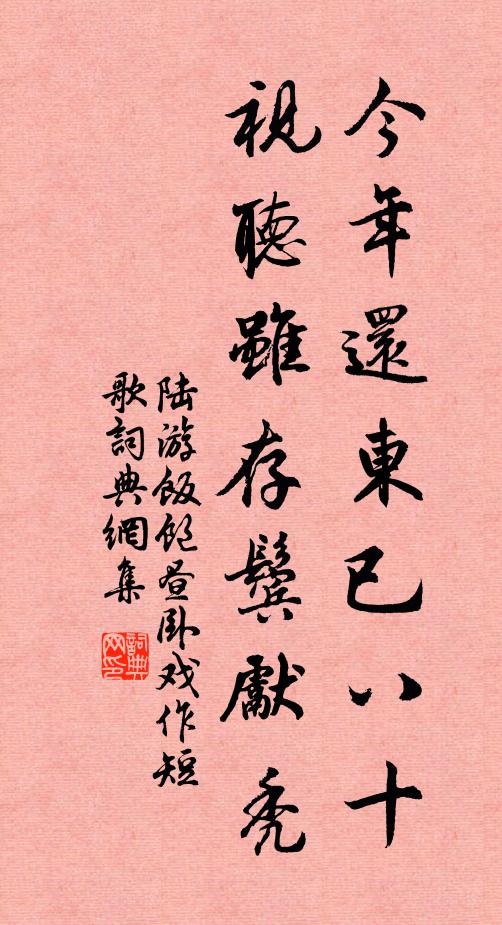 今年還東已八十
視聽雖存鬢獻秃
陆游飯飽昼卧戏作短
歌詞典網集
詞典网印